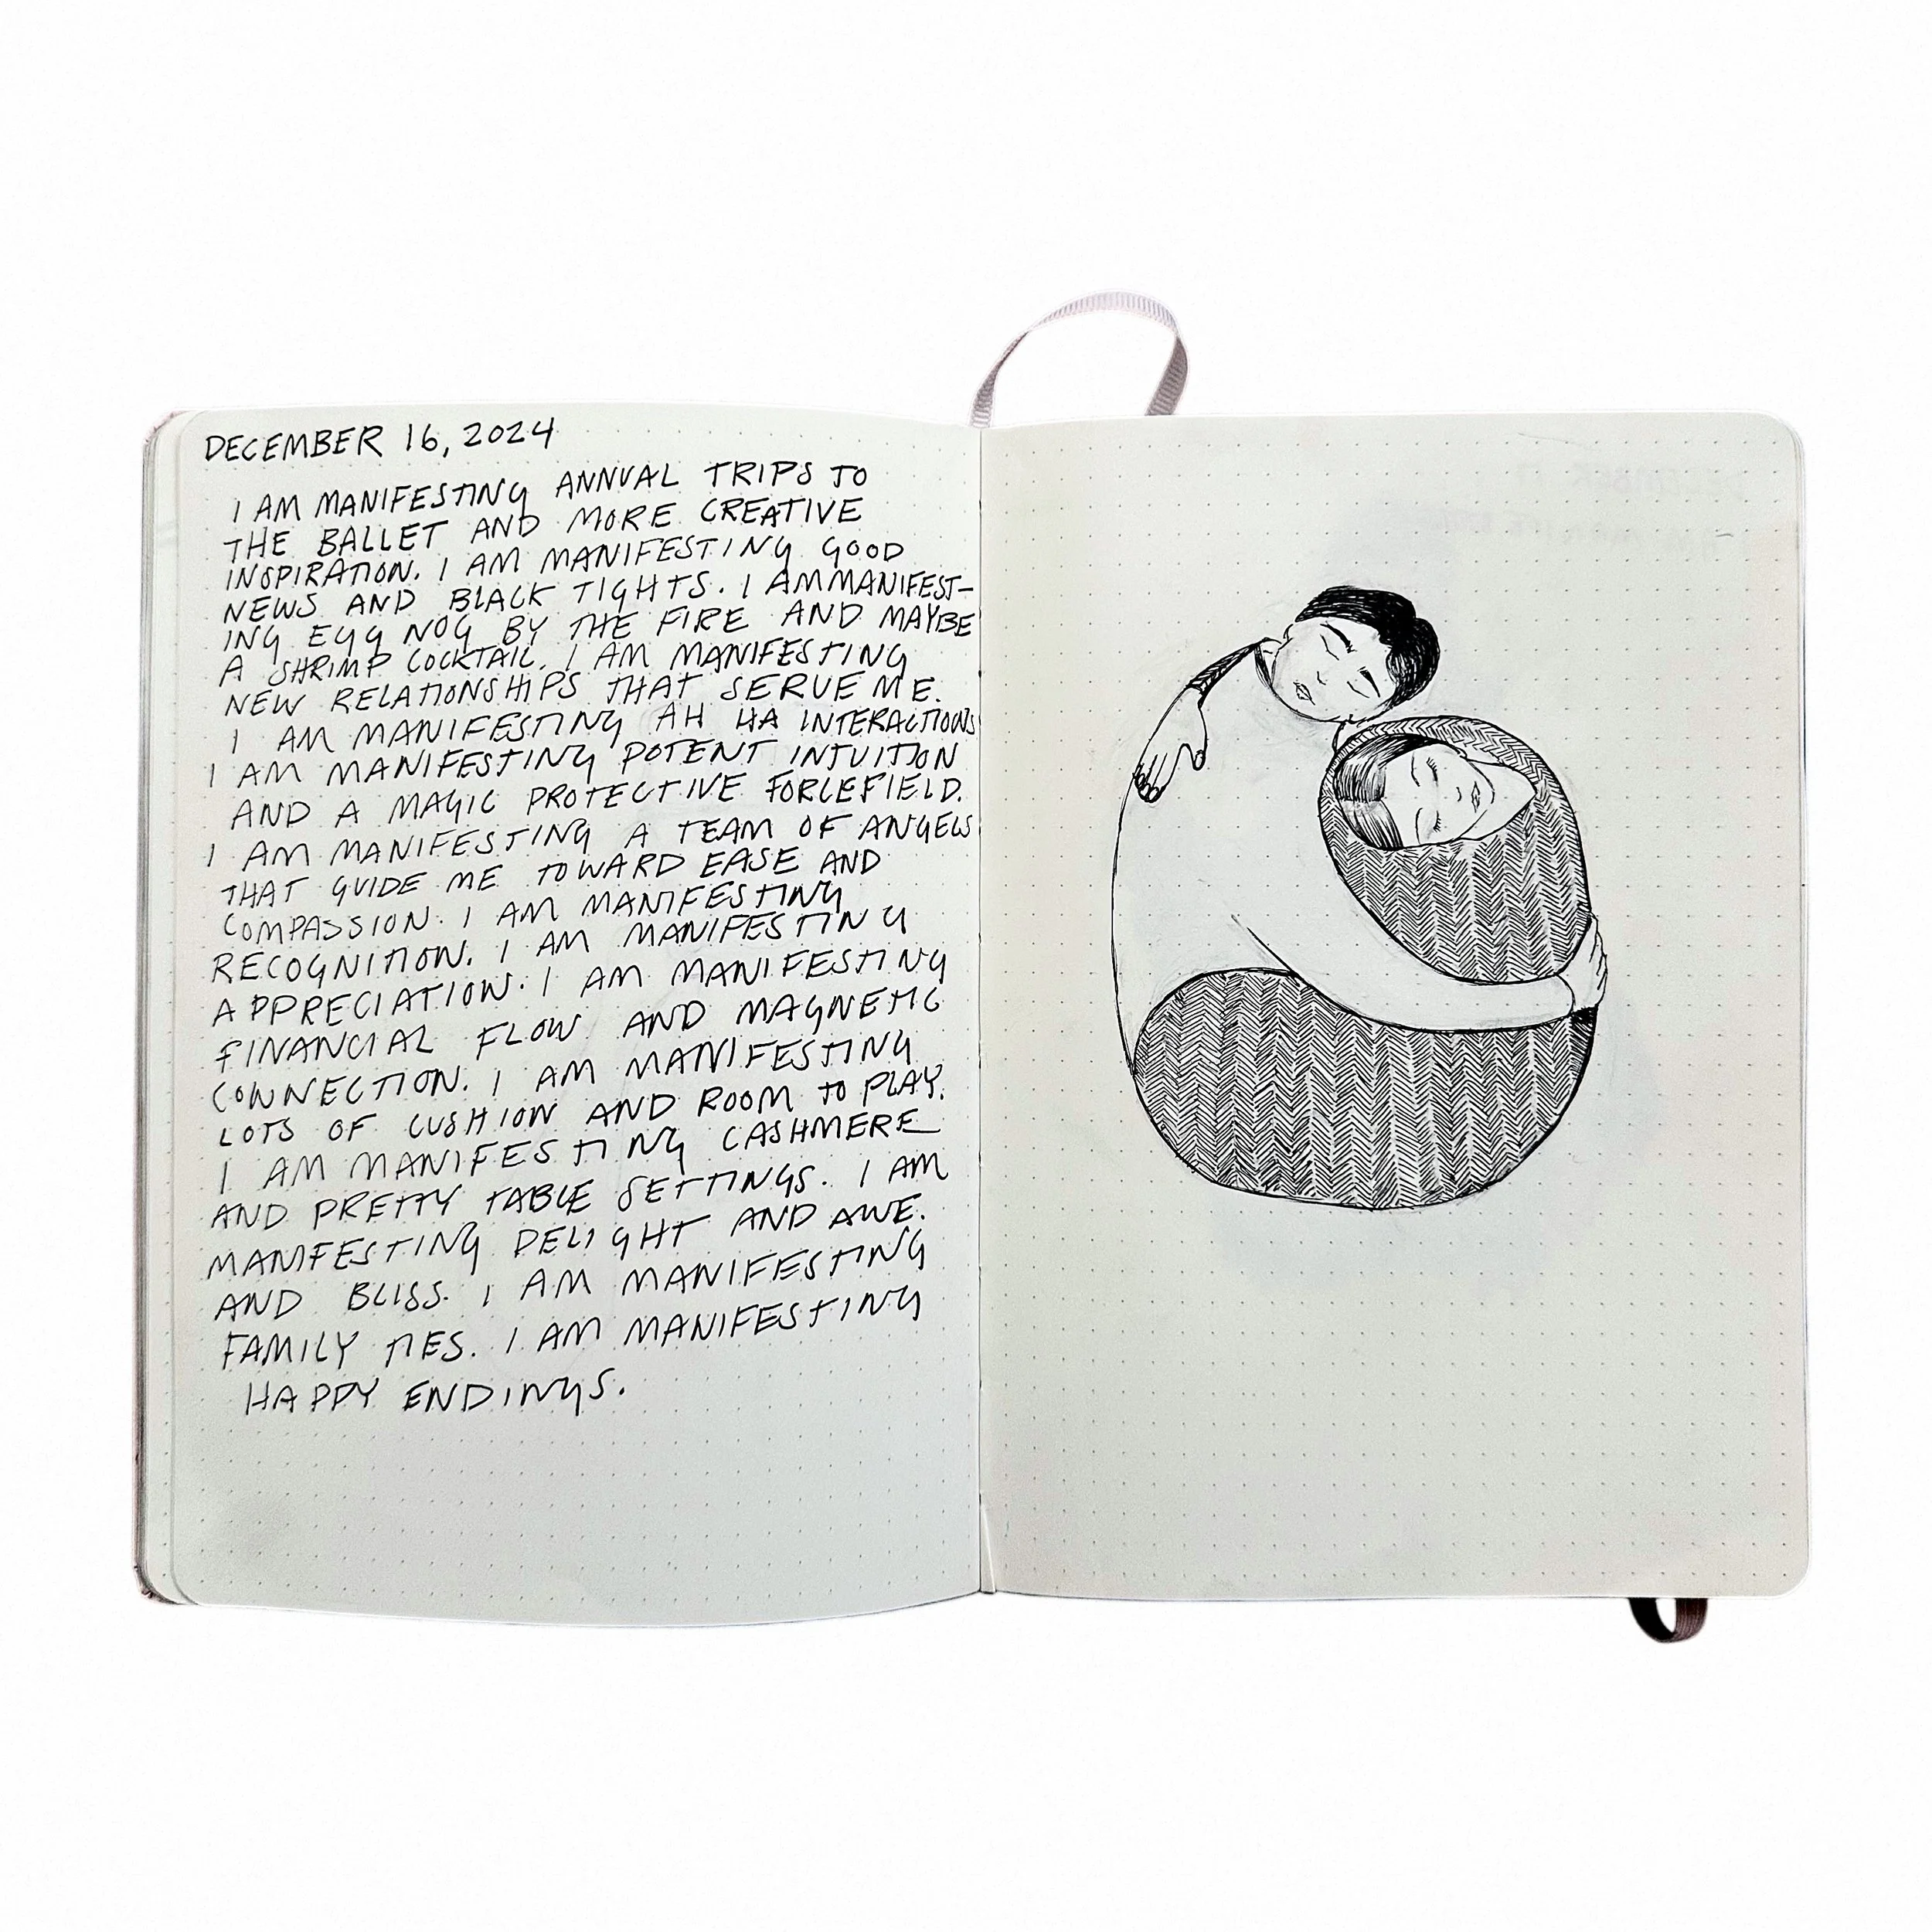 DECEMBER 16, 2024
I AM MANIFESTING ANNUAL TRIPS TO
THE BALLET AND MORE CREATIVE
INSPIRATION. I AM MANIFESTING GOOD
NEWS AND BLACK TIGHTS. I AM MANIFEST-
ING EGG NOG BY THE FIRE AND MAYBE
A SHRIMP COCKTAIL. I AM MANIFESTING
NEW RELATIONSHIPS THAT SERVE ME.
I AM MANIFESTING AH HA INTERACTIONS
I AM MANIFESTING POTENT INTUITION
AND A MAGIC PROTECTIVE FORCEFIELD.
I AM MANIFESTING A TEAM OF ANGELS
THAT GUIDE ME TOWARD EASE AND
COMPASSION. I AM MANIFESTING
RECOGNITION. I AM MANIFESTING
APPRECIATION. I AM MANIFESTING
FINANCIAL FLOW AND MAGNETIC
CONNECTION. I AM MANIFESTING
LOTS OF CUSHION AND ROOM TO PLAY.
I AM MANIFESTING CASHMERE
AND PRETTY TABLE SETTINGS. I AM
MANIFESTING DELIGHT AND AWE.
AND BLISS. I AM MANIFESTING
FAMILY TIES. I AM MANIFESTING
HAPPY ENDINGS.